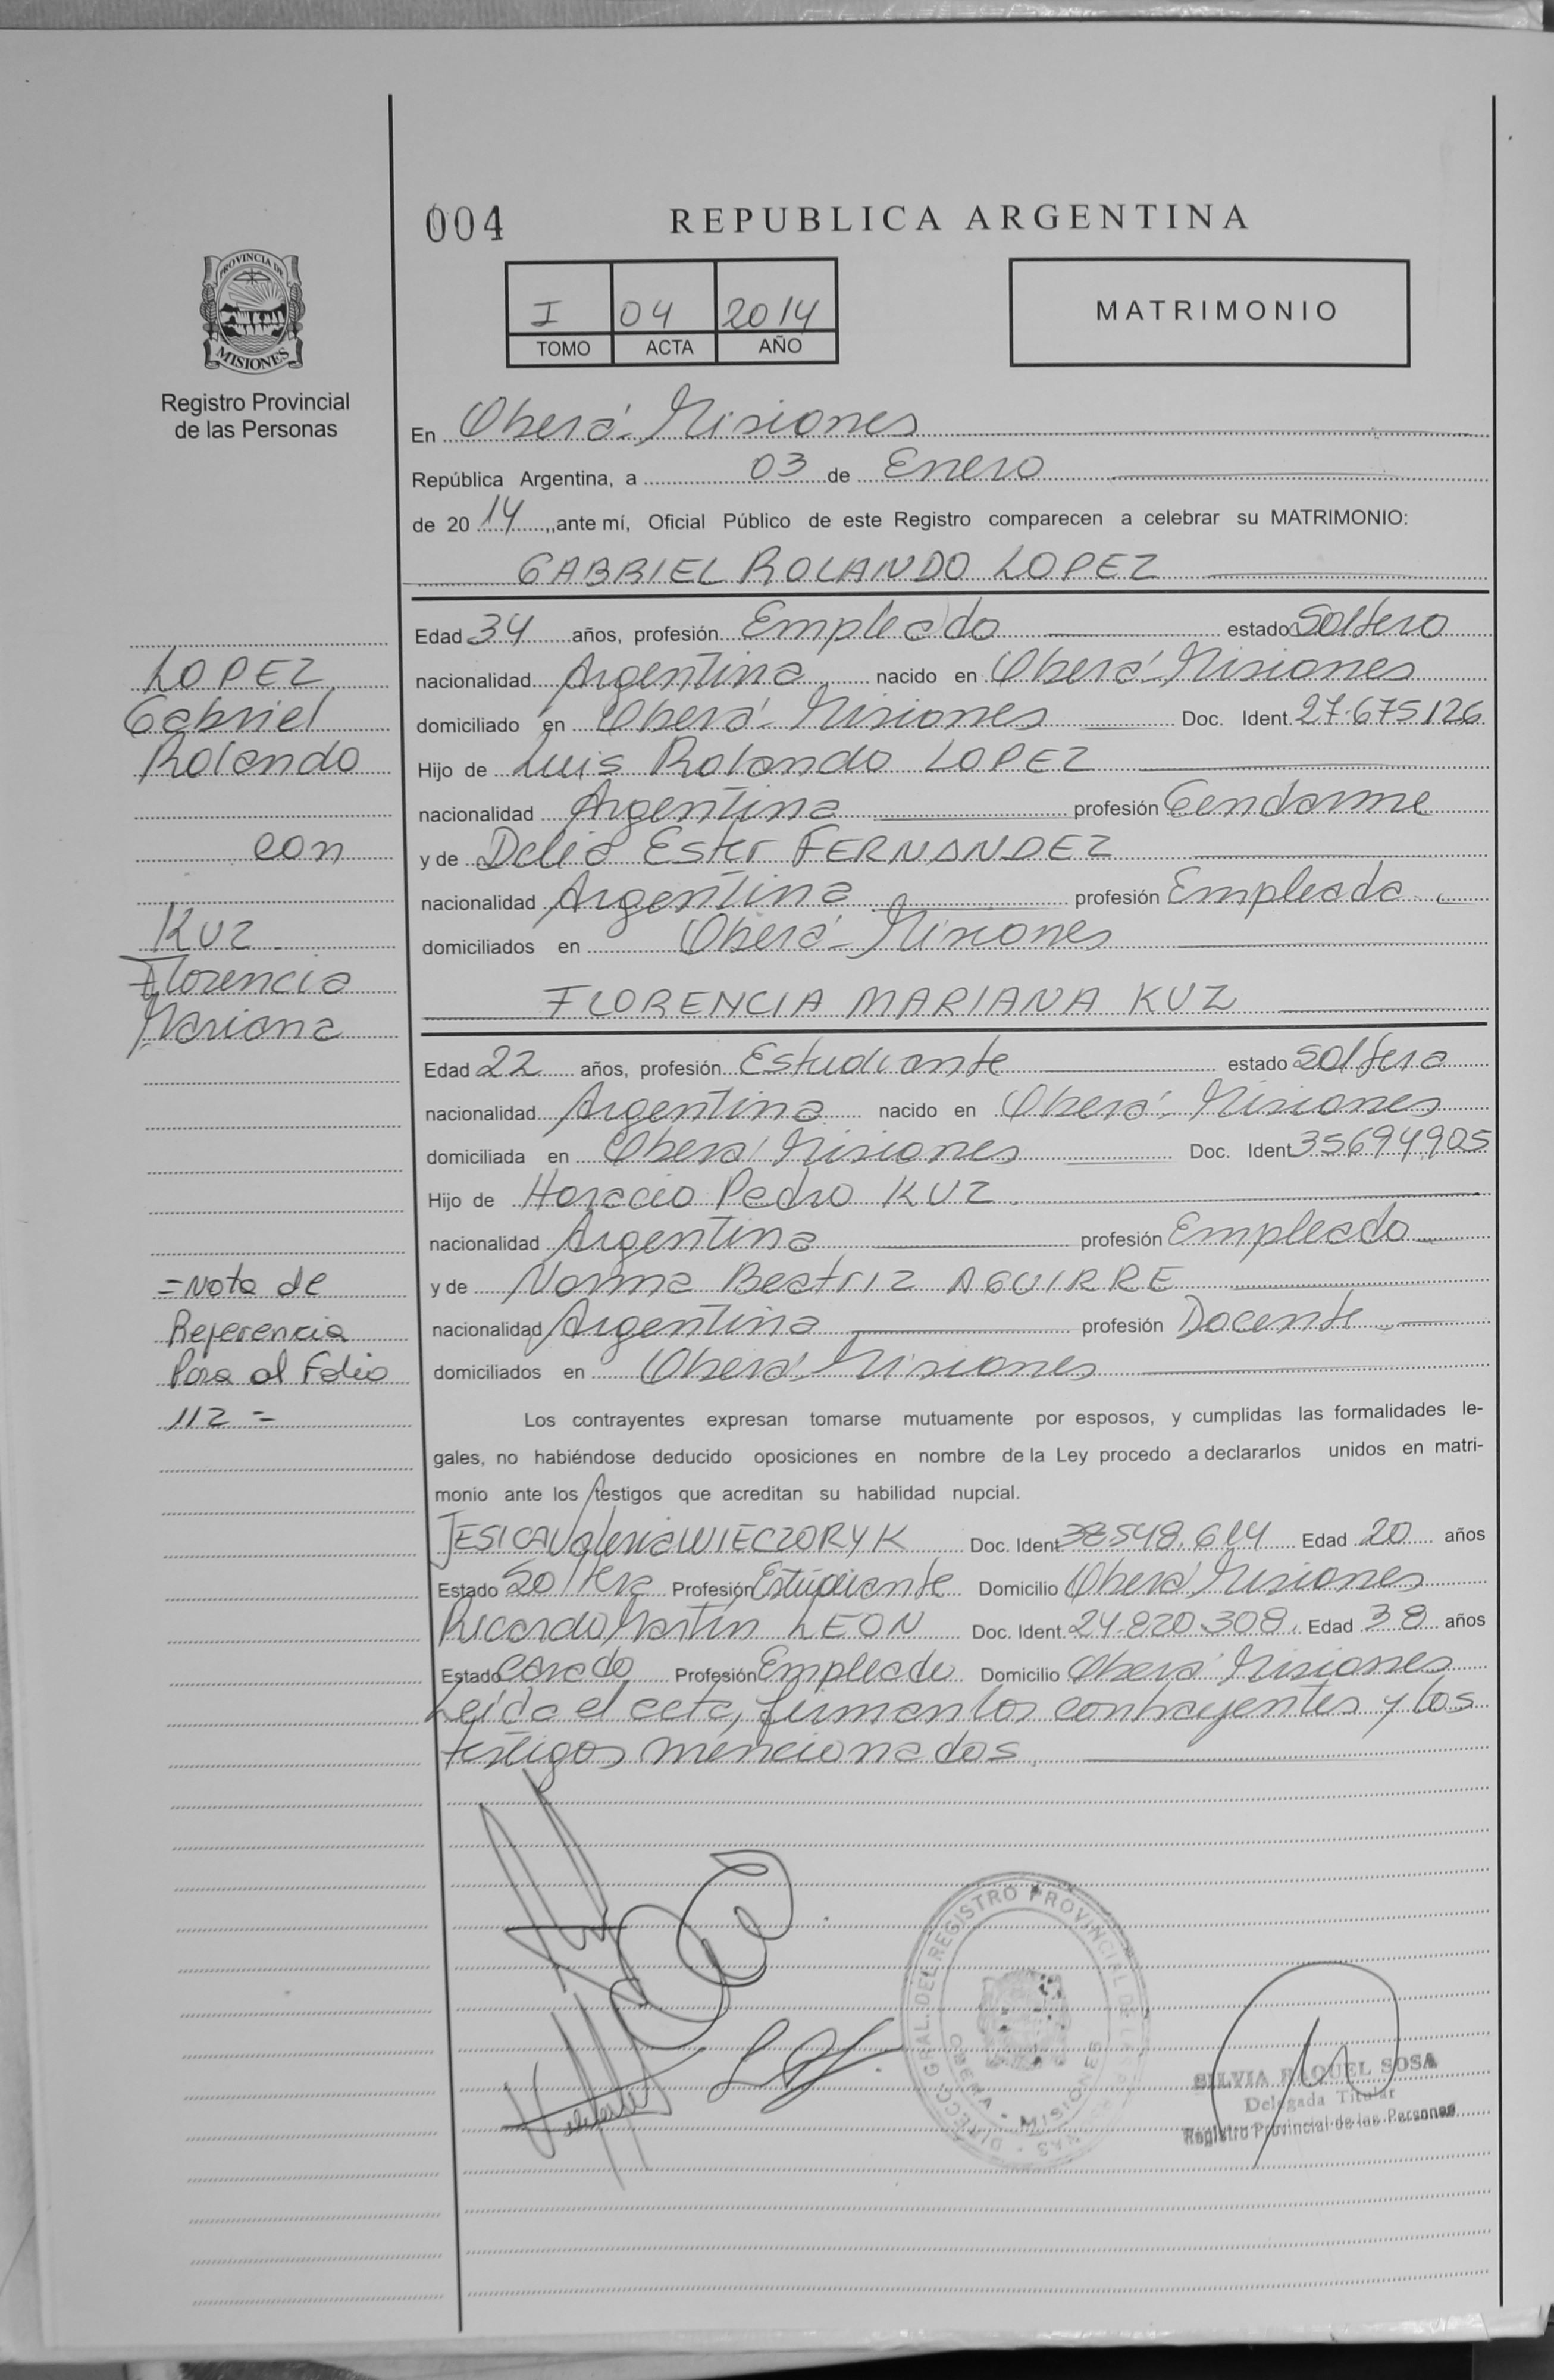 004
REPUBLICA ARGENTINA
PROVINCIA DE
MISIONES
Registro Provincial
de las Personas
I 04 2014
TOMO ACTA AÑO
MATRIMONIO
En Oberá - Misiones
República Argentina, a 03 de Enero
de 20 14 ,,ante mí, Oficial Público de este Registro comparecen a celebrar su MATRIMONIO:
GABRIEL ROLANDO LOPEZ
Edad 34 años, profesión Empleado estado Soltero
nacionalidad Argentina nacido en Oberá - Misiones
domiciliado en Oberá - Misiones Doc. Ident. 27.675.126
Hijo de Luis Rolando LOPEZ
nacionalidad Argentina profesión Gendarme
y de Delia Ester FERNANDEZ
nacionalidad Argentina profesión Empleada
domiciliados en Oberá - Misiones
FLORENCIA MARIANA KUZ
Edad 22 años, profesión Estudiante estado soltera
nacionalidad Argentina nacido en Oberá - Misiones
domiciliada en Oberá Misiones Doc. Ident. 35694.905
Hijo de Horacio Pedro KUZ
nacionalidad Argentina profesión Empleado
y de Norma Beatriz AGUIRRE
nacionalidad Argentina profesión Docente
domiciliados en Oberá - Misiones
Los contrayentes expresan tomarse mutuamente por esposos, y cumplidas las formalidades le-
gales, no habiéndose deducido oposiciones en nombre de la Ley procedo a declararlos unidos en matri-
monio ante los testigos que acreditan su habilidad nupcial.
JESICA Valeria WIECZORYK Doc. Ident. Edad 20 años
Estado Soltera Profesión Estudiante Domicilio Oberá Misiones
Ricardo Martín LEON Doc. Ident. 24.820.308. Edad 38 años
Estado Casado Profesión Empleado Domicilio Oberá Misiones
Leída el acta, firman los contrayentes y los
testigos mencionados.
LOPEZ
Gabriel
Rolando
con
KUZ
Florencia
Mariana
=Nota de
Referencia
Pasa al Folio
112 =
DIRECC. GRAL. DEL REGISTRO PROVINCIAL DE LAS PERSONAS
OBERA - MISIONES
SILVIA RAQUEL SOSA
Delegada Titular
Registro Provincial de las Personas